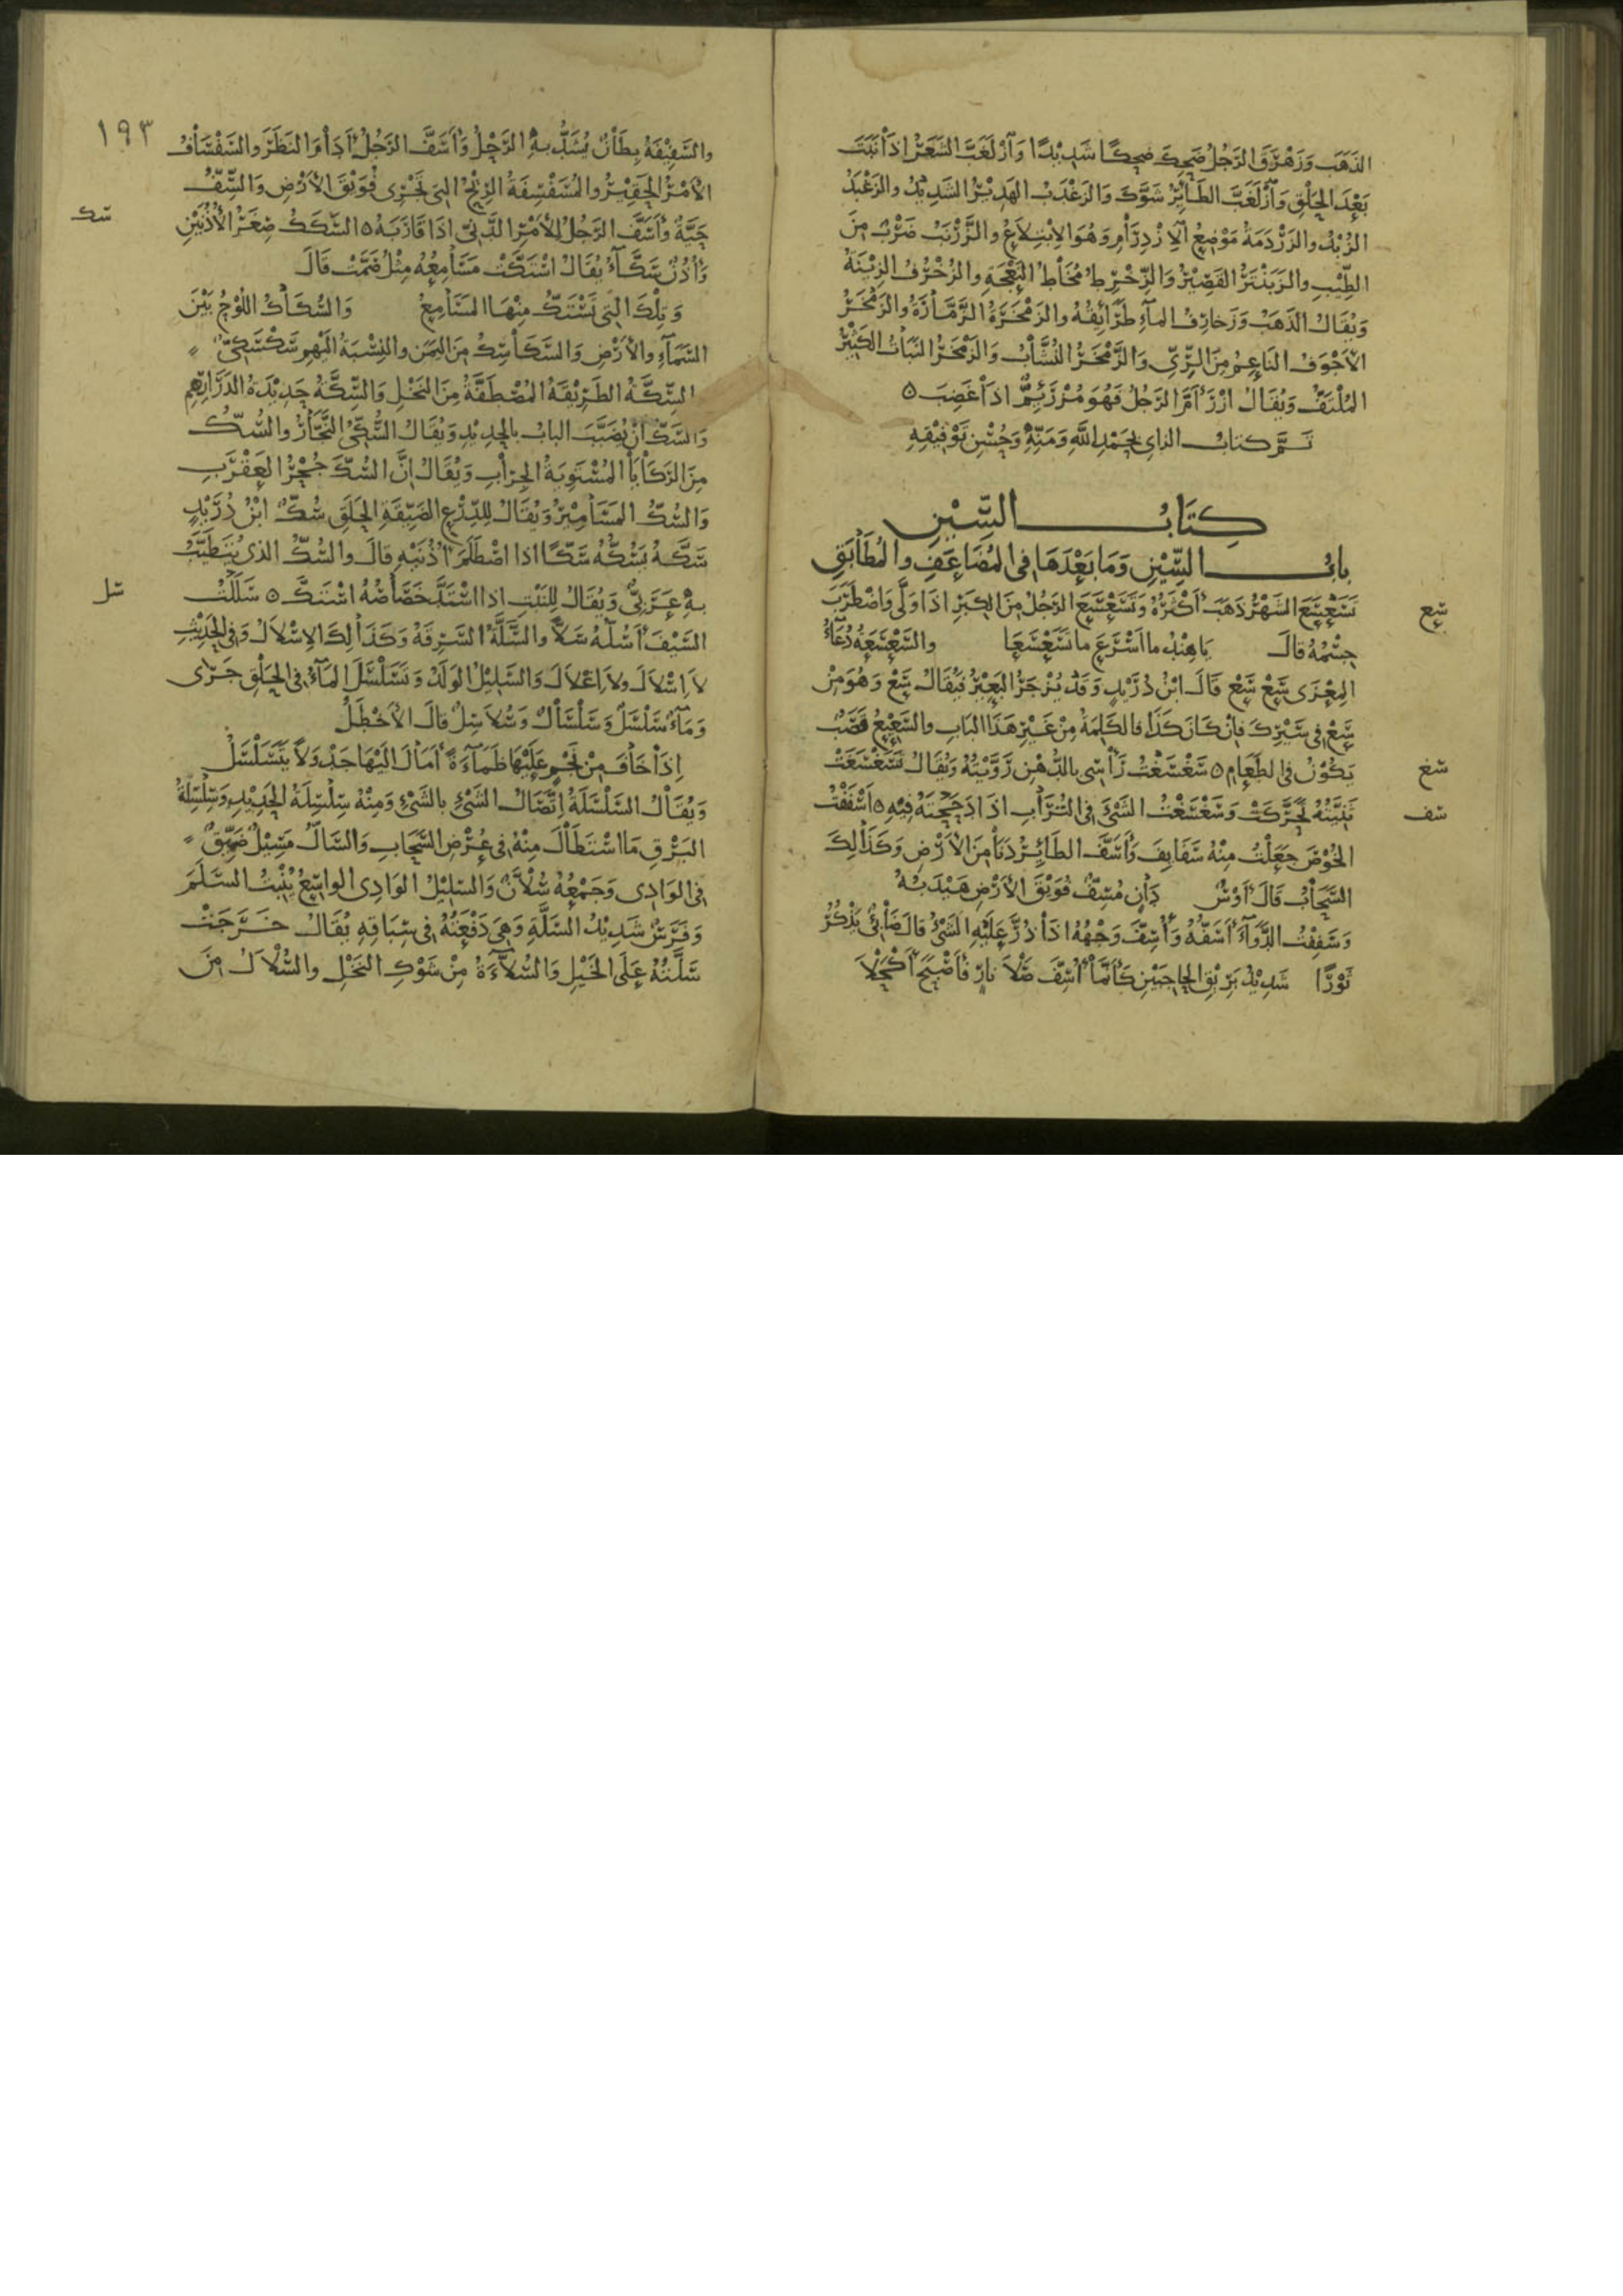 الذَهَب وَزَهْزَقَ الرَجُلُ ضَحِكَ ضحِكًا شَدِيْدًا وَازْلَغَبَّ الشَعَرُ اذَا نَبَتَ
بَعْدَ الحَلْقِ وَازْلَغَبَّ الطَائِرُ شَوَّكَ وَالزَغْدَبُ الهَدِيْرُ الشَدِيْدُ والزَغْبَدُ
الزُبْدُ والزَرْدَمَةُ مَوْضِعُ الازْدِرَامِ وَهُوَ الابْتِلاَعُ والزَرْنَبُ ضَرْبٌ مِنَ
الطِيْبِ والزَبَنْتَرُ القَصِيْرُ وَالزِخْرِطُ مُخَاطُ النَعْجَةِ والزُخْرُفُ الزِيْنَةُ
وَيُقَالُ الذَهَبُ وَزَخَارِفُ المآءِ طَرَائِقُهُ والزَمْخَرَةُ الزَمَّارَةُ والزَمْخَرُ
الاَجْوَفُ النَاعِمُ مِنَ الرِّيّ وَالزَّمْخَرُ النُشَّابُ وَالزَمْخَرُ النَبَاتُ الكَثِيْرُ
المُلْتَفُّ وَيُقَالُ ازْرَأَمَّ الرَجُلُ فَهُوَ مُزْرَئِمٌّ اذَا غَضِبَ ٥
تَمَّ كتابُ الزاي بحَمْدِ اللهِ وَمَنِّهِ وَحُسْنِ تَوْفِيْقِهِ
كِتَابُ السِّيْنِ
بابُ السِّيْنِ وَمَا بَعْدَهَا فى المُضَاعَفِ والمُطَابَقِ
سع تَسَعْسَعَ الشَهْرُ ذَهَبَ أَكْثَرُهُ وَتَسَعْسَعَ الرَجُلُ مِنَ الكِبَرِ اذَا وَلَّى وَاضْطَرَبَ
جِسْمُهُ قالَ يَا هِنْدُ ما اَسْرَعَ ما تَسَعْسَعَا والسَّعْسَعَةُ دُعَآءُ
المِعْزَى سَعْ سَعْ قَالَ ابْنُ دُرَيْدٍ وَقَدْ يُزْجَرُ البَعِيْرُ فَيُقَالُ سَعْ وَهُوَ مِنْ
سَعْ فى سَيْرِكَ فَاِنْ كَانَ كَذَا فالكَلِمَةُ مِنْ غَيْرِ هَذَا البَابِ والسَعِيْعُ قَصَبٌ
سغ يَكُوْنُ فى الطَعَامِ ٥ سَغْسَغْتُ رَأْسِى بالدُهْنِ رَوَّيْتُهُ وَيُقَالُ تَسَغْسَغَتْ
سف ثَنِيَّتُهُ تَحَرَّكَتْ وَسَغْسَغْتُ الشَىْءَ فى التُرَابِ اذَا دَحَجْتَهُ فِيْهِ ٥ اَسْفَفْتُ
الخُوْصَ جَعَلْتُ مِنْهُ سَفَايِفَ وَأَسَفَّ الطَائِرُ دَنَا مِنَ الأَرْضِ وَكَذَالِكَ
السَّحَابُ قَالَ أَوْسٌ دَانٍ مُسِفٌّ فُوَيْقَ الأَرْضِ هَيْدَبُهُ
وَسَفِفْتُ الدَّوَآءَ أَسَفُّهُ وَأُسِفَّ وَجْهُهُ اذَا ذُرَّ عَلَيْهِ الشَىْءُ قالَ ضَابِئٌ يَذْكُرُ
ثَوْرًا شَدِيْدُ بَرِيْقِ الحاجِبَيْنِ كَأَنَّمَا أُسِفَّ صَلاَ نارٍ فَأَصْبَحَ أَكْحَلاَ
١٩٣
والسَفِيْفَةُ بِطَانٌ يُشَدُّ بهِ الرَحْلُ وَأَسَفَّ الرَجُلُ اَدَامَ النَظَرَ والسَفْسَافُ
الأَمْرُ الحَقِيْرُ والمُسَفْسِفَةُ الرِيْحُ التى تَجْرِى فُوَيْقَ الأَرْضِ وَالسِّفُّ
سك حَيَّةٌ وَأَسَفَّ الرَجُلُ لِلأَمْرِ الدَنِىّ اذَا قَارَبَهُ ٥ السَّكَكُ صِغَرُ الأُذُنَيْنِ
وَأُذُنٌ سَكَّآءُ يُقَالُ اسْتَكَّتْ مَسَامِعُهُ مِثْلُ صَمَّتْ قَالَ
وَتِلْكَ الَّتِى تَسْتَكُّ مِنْهَا المَسَامِعُ وَالسُّكَاكُ اللُوْحُ بَيْنَ
السَمَآءِ والأَرْضِ وَالسَّكَاسِكُ مِنَ اليَمَنِ والنِسْبَةُ الَيْهِم سَكْسَكِىٌّ
السِّكَّةُ الطَرِيْقَةُ المُصْطَفَّةُ مِنَ النَخْلِ وَالسِّكَّةُ حَدِيْدَةُ الدَرَاهِمِ
وَالسَكُّ اَنْ يُضَبَّبَ البابُ بالحَدِيْدِ وَيُقَالُ السَّكِّىُّ النَّجَّارُ والسُّكُّ
مِنَ الرَكَايَا المُسْتَوِيَةُ الجِرَابِ وَيُقَالُ اِنَّ السُّكَّ جُحْرُ العَقْرَبِ
وَالسُّكُّ المَسَامِيْرُ وَيُقَالُ لِلدِّرْعِ الضَيِّقَةِ الحَلَقِ سُكٌّ ابْنُ دُرَيْدٍ
سَكَّهُ يَسُكُّهُ سَكًّا اذا اصْطَلَمَ اُذُنَيْهِ قالَ والسُكُّ الذى يُتَطَيَّبُ
سل بهِ عَرَبِىٌّ وَيُقَالُ لِلنَبْتِ اذا اسْتَدَّ خَصَاصُهُ اسْتَكَّ ٥ سَلَلْتُ
السَّيْفَ أَسُلُّهُ سَلاًّ والسَّلَّةُ السَرِقَةُ وَكَذَالِكَ الاِسْلاَلُ وَفى الحَدِيْثِ
لاَ اِسْلاَلَ ولاَ اِغْلاَلَ وَالسَلِيْلُ الوَلَدُ وَتَسَلْسَلَ المَآءُ فى الحَلْقِ جَرَى
وَمَآءٌ سَلْسَلٌ وَسَلْسَالٌ وَسُلاَسِلٌ قالَ الأَخْطَلُ
اِذَا خَافَ مِنْ نَجْمٍ عَلَيْهَا ظَمَآءَةً أَمَالَ الَيْهَا جَدْوَلاً يَتَسَلْسَلُ
وَيُقَالُ السَلْسَلَةُ اِتِّصَالُ الشَىْءِ بالشَىْءِ وَمِنْهُ سِلْسِلَةُ الحَدِيْدِ وَسِلْسِلَةُ
البَرْقِ مَا اسْتَطَالَ مِنْهُ فى عُرْضِ السَّحَابِ وَالسَّالُّ مَسِيْلٌ ضَيِّقٌ
فى الوَادِى وَجَمْعُهُ سُلاَّنٌ وَالسَلِيْلُ الوَادِى الواسِعُ يُنْبِتُ السَّلَمَ
وَفَرَسٌ شَدِيْدُ السَلَّةِ وَهِىَ دَفْعَتُهُ فى سِبَاقِهِ يُقَالُ خَرَجَتْ
سَلَّتُهُ عَلَى الخَيْلِ وَالسُّلاَّءَةُ مِنْ شَوْكِ النَخْلِ والسُّلاَلُ مِنَ